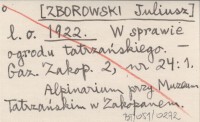 [ZBOROWSKI Juliusz]
l.o. 1922. W sprawie
ogrodu tatrzańskiego. —
Gaz. Zakop. 2, nr 24:1.
Alpinarium przy Muzeum
Tatrzańskim w Zakopanem.